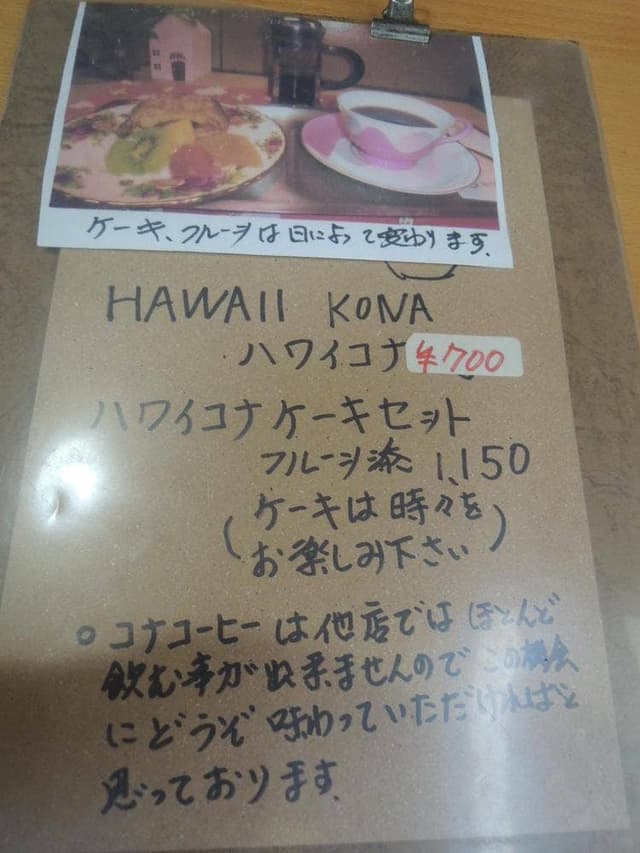 ケーキ、フルーツは日によって変わります。
HAWAII KONA
ハワイコナ ¥700
ハワイコナケーキセット
フルーツ添 1,150
(ケーキは時々を
お楽しみ下さい)
○ コナコーヒーは他店ではほとんど
飲む事が出来ませんのでこの機会
にどうぞ味わっていただければと
思っております。